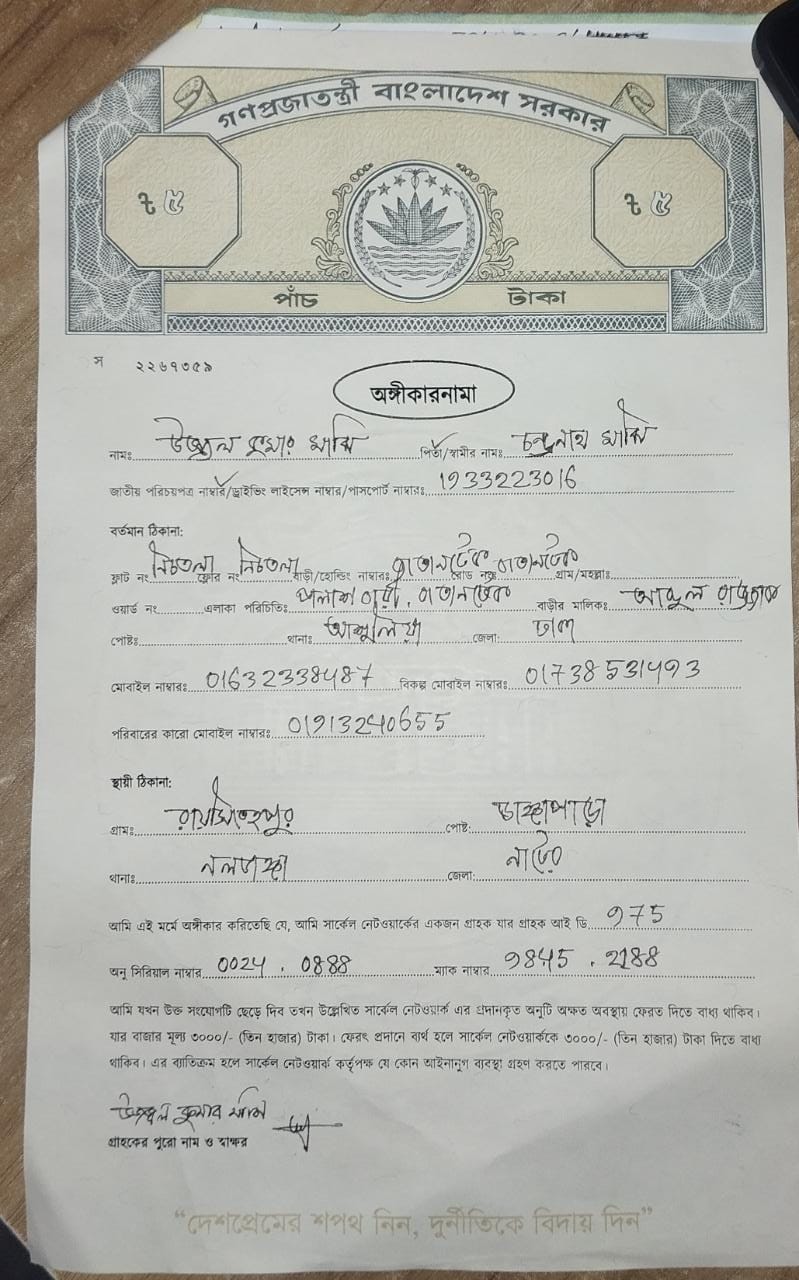 গণপ্রজাতন্ত্রী বাংলাদেশ সরকার
৳ ৫ ৳ ৫
পাঁচ টাকা
স ২২৬৭৩৫৯
অঙ্গীকারনামা
নামঃ উজ্জ্বল কুমার মাঝি পিতা/স্বামীর নামঃ চন্দ্রনাথ মাঝি
জাতীয় পরিচয়পত্র নাম্বার/ড্রাইভিং লাইসেন্স নাম্বার/পাসপোর্ট নাম্বারঃ 1933223016
বর্তমান ঠিকানা:
ফ্লাট নং নিচতলা ফ্লোর নং নিচতলা বাড়ী/হোল্ডিং নাম্বারঃ রোড নং গ্রাম/মহল্লাঃ
ওয়ার্ড নং এলাকা পরিচিতিঃ পলাশবাড়ী, বাড়ীর মালিকঃ আব্দুল রাজ্জাক
পোষ্টঃ থানাঃ আশুলিয়া জেলা: ঢাকা
মোবাইল নাম্বারঃ 01632338487 বিকল্প মোবাইল নাম্বারঃ 01738531493
পরিবারের কারো মোবাইল নাম্বারঃ 01913240655
স্থায়ী ঠিকানা:
গ্রামঃ পোষ্ট:
থানাঃ নলডাঙ্গা জেলা:
আমি এই মর্মে অঙ্গীকার করিতেছি যে, আমি সার্কেল নেটওয়ার্কের একজন গ্রাহক যার গ্রাহক আই ডি 975
অনু সিরিয়াল নাম্বার 0024 . 0888 ম্যাক নাম্বার 9845 . 2188
আমি যখন উক্ত সংযোগটি ছেড়ে দিব তখন উল্লেখিত সার্কেল নেটওয়ার্ক এর প্রদানকৃত অনুটি অক্ষত অবস্থায় ফেরত দিতে বাধ্য থাকিব।
যার বাজার মূল্য ৩০০০/- (তিন হাজার) টাকা। ফেরৎ প্রদানে ব্যর্থ হলে সার্কেল নেটওয়ার্ককে ৩০০০/- (তিন হাজার) টাকা দিতে বাধ্য
থাকিব। এর ব্যতিক্রম হলে সার্কেল নেটওয়ার্ক কর্তৃপক্ষ যে কোন আইনানুগ ব্যবস্থা গ্রহণ করতে পারবে।
উজ্জ্বল কুমার মাঝি
গ্রাহকের পুরো নাম ও স্বাক্ষর
“দেশপ্রেমের শপথ নিন, দুর্নীতিকে বিদায় দিন”